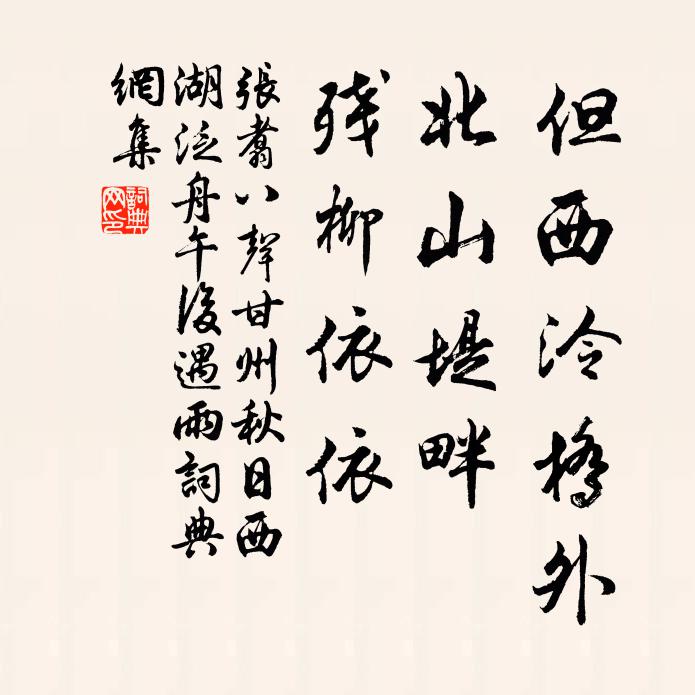 但西泠橋外
北山堤畔
殘柳依依
張翥八聲甘州秋日西
湖泛舟午後遇雨詞典
網集
詞典網印